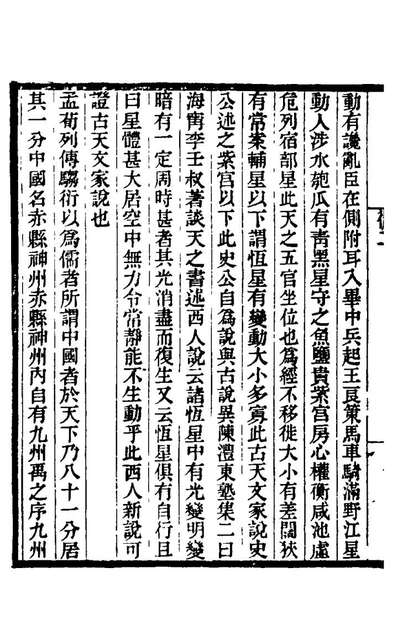 動有讒亂臣在側附耳入畢中兵起王良策馬車騎滿野江星
動人涉水匏瓜有青黑星守之魚鹽貴紫宮房心權衡咸池虛
危列宿部星此天之五官坐位也為經不移徙大小有差闊狹
有常案輔星以下謂恆星有變動大小多寡此古天文家說史
公述之紫宮以下此史公自為說與古說異陳澧東塾集二曰
海甯李壬叔著談天之書述西人說云諸恆星中有光變明變
暗有一定周時甚者其光消盡而復生又云恆星俱有自行且
曰星體甚大居空中無力令常靜能不生動乎此西人新說可
證古天文家說也
孟荀列傳騶衍以為儒者所謂中國者於天下乃八十一分居
其一分中國名赤縣神州赤縣神州內自有九州禹之序九州